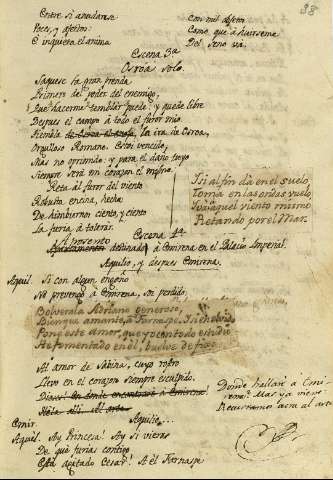 38
Entre si anudarse
Voces, y afectos:
E inquieta el anima
Con mil afetos
Como que à huirseme
Del seno va.
Escena 3ª
Osroa solo.
Saquese la gran prenda
Primero del poder del enemigo,
Que hacerme temblar puede: y quede libre
Despues el campo à todo el furor mio
Tiembla la ira de Osroa,
Orgulloso Romano. Estoi vencido,
Mas no oprimido: y para el daño tuyo
Siempre será un corazon el mismo.
Reta al furor del viento
Robusta encina, hecha
De himbiernos ciento, y ciento
La furia, à tolerar.
Y si al fin dà en el suelo,
Torna en las ondas vuelo,
Y va aquel viento mismo
Retando por el Mar.
Escena 4ª
destinado à Emirena en el Palacio Imperial.
Aquilio, y despues Emirena.
Aquil. Si con algun engaño
No prevengo à Emirena, soi perdido.
Bolverala Adriano generoso,
Bienque amante, à Farnaspe. Y si él
este amor, que yo con todo estudio
He fomentado en él, buelve de fijo
Al amor de Sabina, cuyo rostro
Llevo en el corazon siempre esculpido.
Donde hallaré à Emirena?
Mas ya viene.
Recurramos acia el arte
Emir. Aquilio...
Aquil. Ay Princesa! Ay si vieras
De qué furias contigo
Está agitado Cesar! A el Farnaspe